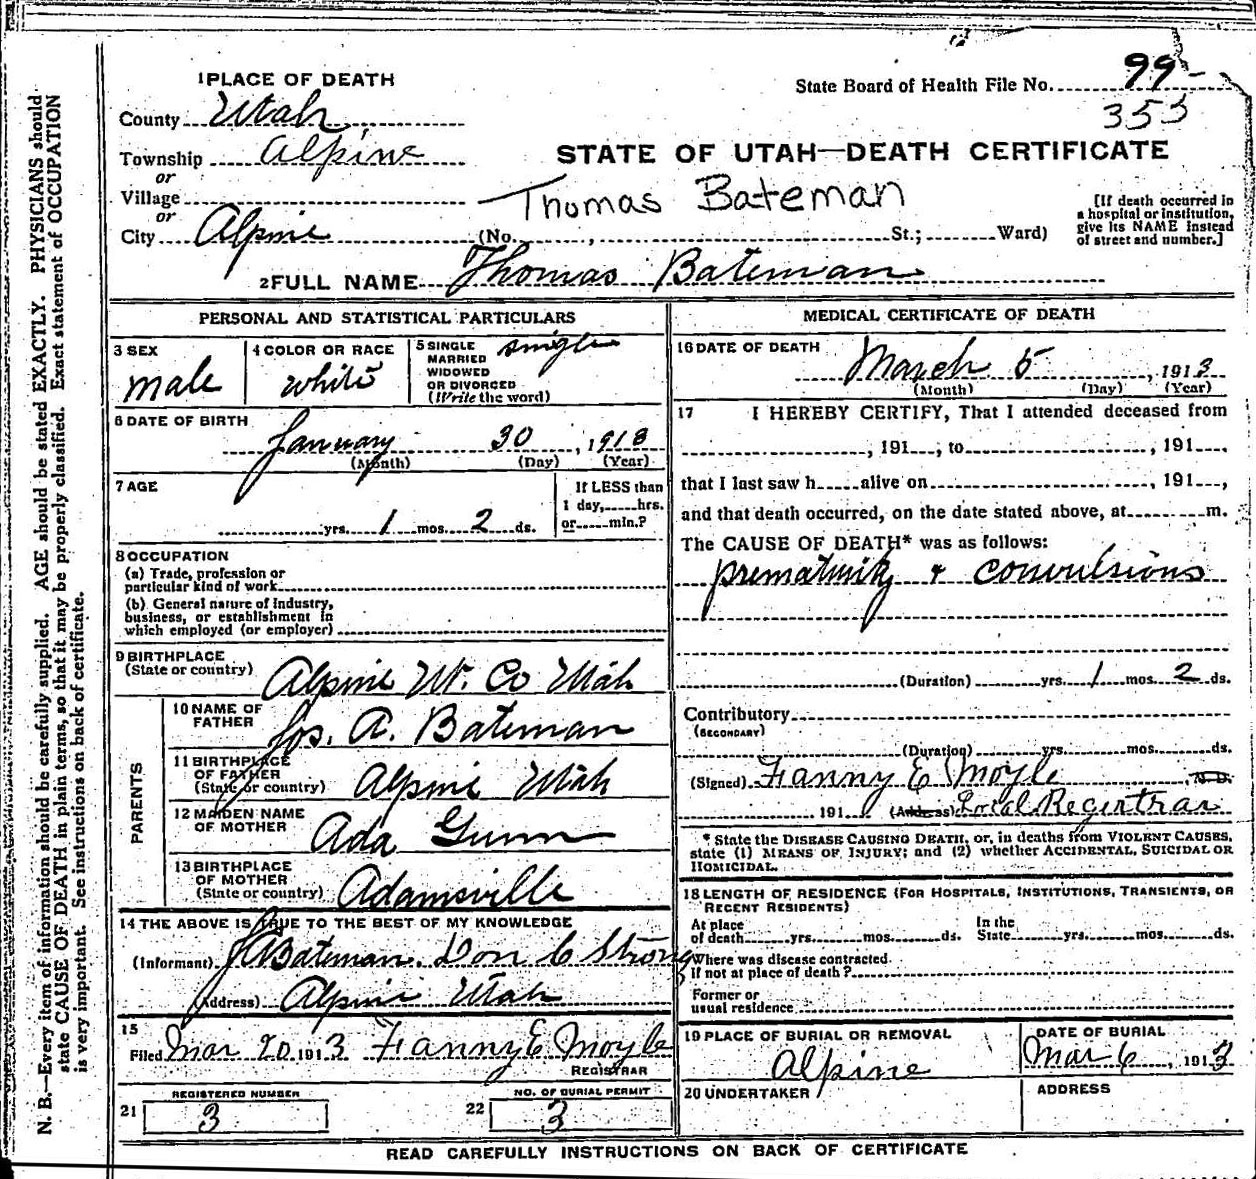 1 PLACE OF DEATH
State Board of Health File No. 99-
353
County Utah
Township Alpine
or
Village
or
City Alpine
STATE OF UTAH—DEATH CERTIFICATE
Thomas Bateman
(No. , St.; Ward)
[If death occurred in
a hospital or institution,
give its NAME instead
of street and number.]
2 FULL NAME Thomas Bateman
PERSONAL AND STATISTICAL PARTICULARS
3 SEX
male
4 COLOR OR RACE
white
5 SINGLE
MARRIED
WIDOWED
OR DIVORCED
(Write the word)
single
6 DATE OF BIRTH
January 30, 1913
(Month) (Day) (Year)
7 AGE
yrs. 1 mos. 2 ds.
If LESS than
1 day, hrs.
or min.?
8 OCCUPATION
(a) Trade, profession or
particular kind of work
(b) General nature of industry,
business, or establishment in
which employed (or employer)
9 BIRTHPLACE
(State or country)
Alpine Ut. Co Utah
PARENTS
10 NAME OF
FATHER
Jos. A. Bateman
11 BIRTHPLACE
OF FATHER
(State or country)
Alpine Utah
12 MAIDEN NAME
OF MOTHER
Ada Gunn
13 BIRTHPLACE
OF MOTHER
(State or country)
Adamsville
14 THE ABOVE IS TRUE TO THE BEST OF MY KNOWLEDGE
(Informant) J A Bateman. Don C Strong
(Address) Alpine Utah
15
Filed Mar 20 1913 Fanny E Moyle
REGISTRAR
21 REGISTERED NUMBER
3
22 NO. OF BURIAL PERMIT
3
MEDICAL CERTIFICATE OF DEATH
16 DATE OF DEATH
March 5, 1913
(Month) (Day) (Year)
17 I HEREBY CERTIFY, That I attended deceased from
, 191 , to , 191 ,
that I last saw h alive on , 191 ,
and that death occurred, on the date stated above, at m.
The CAUSE OF DEATH* was as follows:
prematurity & convulsions
(Duration) yrs. 1 mos. 2 ds.
Contributory
(SECONDARY)
(Duration) yrs. mos. ds.
(Signed) Fanny E Moyle , M.D.
191 (Address) Local Registrar
* State the DISEASE CAUSING DEATH, or, in deaths from VIOLENT CAUSES,
state (1) MEANS OF INJURY; and (2) whether ACCIDENTAL, SUICIDAL OR
HOMICIDAL.
18 LENGTH OF RESIDENCE (FOR HOSPITALS, INSTITUTIONS, TRANSIENTS, OR
RECENT RESIDENTS)
At place
of death yrs. mos. ds.
In the
State yrs. mos. ds.
Where was disease contracted
if not at place of death?
Former or
usual residence
19 PLACE OF BURIAL OR REMOVAL
Alpine
DATE OF BURIAL
Mar 6, 1913
20 UNDERTAKER
ADDRESS
READ CAREFULLY INSTRUCTIONS ON BACK OF CERTIFICATE
N. B.—Every item of information should be carefully supplied. AGE should be stated EXACTLY. PHYSICIANS should
state CAUSE OF DEATH in plain terms, so that it may be properly classified. Exact statement of OCCUPATION
is very important. See instructions on back of certificate.